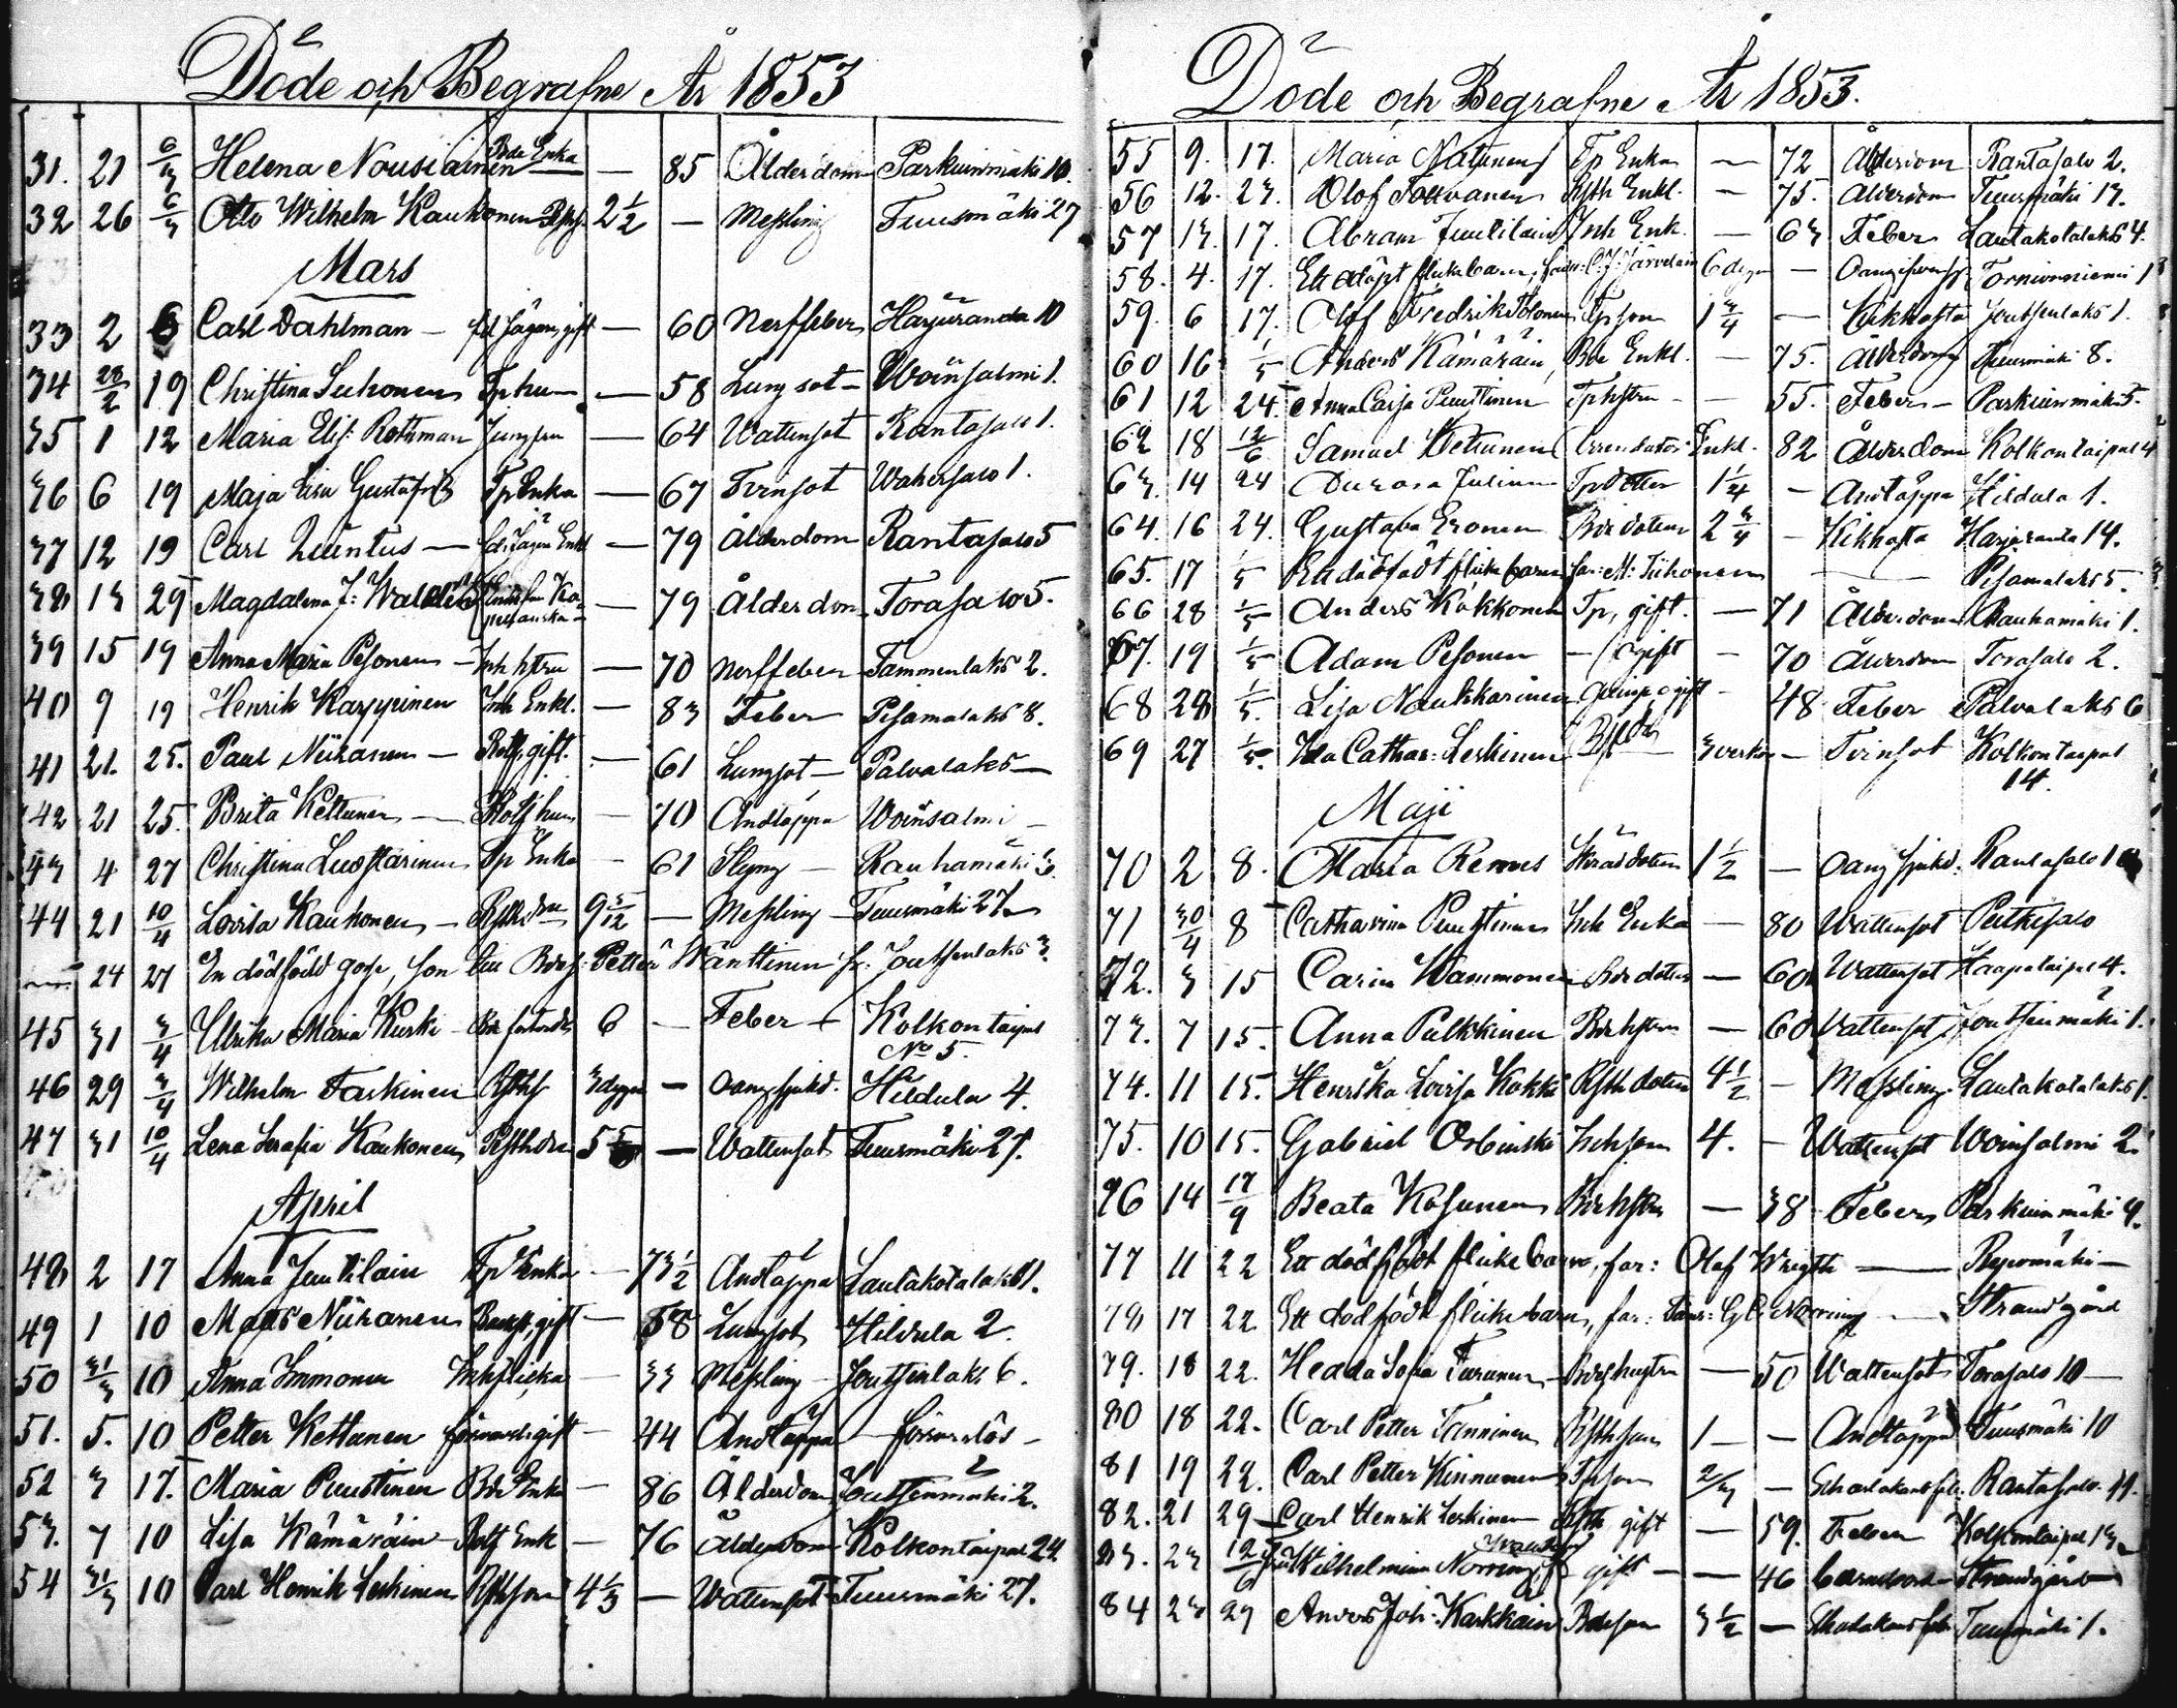 Döde och Begrafne År 1853
31. 21 6/3 Helena Nousiainen Bde Enka — 85 Ålderdom Parkuinmäki 10.
32 26 6/3 Otto Wilhelm Kaukonen 2 1/2 — Messling Tuusmäki 27
Mars
33 2 6 Carl Dahlman — fd. Jägare, gift — 60 Nerffeber Harjuranda 10
34 28/2 19 Christina Suhonen Tp hu — 58 Lungsot — Woinsalmi 1.
35 1 12 Maria Elis: Rothman Jungfru — 64 Wattensot Rantasalo 1.
36 6 19 Maja Lisa Gustafs Tp Enka — 67 Tvinsot Wahersalo 1.
37 12 19 Carl — fd. Jägare Enkl — 79 Ålderdom Rantasalo 5
38 13 29 Magdalena J: — 79 Ålderdom Torasalo 5.
39 15 19 Anna Maria Pesonen — Inh hstru — 70 Nerffeber Tammenlaks 2.
40 9 19 Henrik Karppinen Inh Enkl. — 83 Feber Pisamalaks 8.
41 21. 25. Paul Niiranen — Rotf, gift. — 61 Lungsot — Palvalaks —
42 21 25. Brita Kettunen — Rotf hus — 70 Andtäppa Woinsalmi —
43 4 27 Christina Luostarinen Tp Enka — 61 Slag — Rauhamäki 3
44 21 10/4 Lovisa Kaukonen — 9 5/12 — Messling — Tuusmäki 27
— 24 27 En dödfödd gosse, son till Bdes: Petter Wänttinen fr. Joutsenlaks 3.
45 31 3/4 Ulrika Maria Kurki 6 — Feber — Kolkontaipal
No 5.
46 29 3/4 Wilhelm Taskinen Rsths 3 dygn — oang sjukd. Hildula 4.
47 31 10/4 Lena Serafia Kaukonen 5 — Wattensot Tuusmäki 27.
April
48 2 17 Anna Juutilain Tp Enka — 73 1/2 Andtäppa Lautakotalaks 1.
49 1 10 Mats Niiranen gift — 58 Lungsot Hildula 2.
50 31/3 10 Anna Immonen Inh flicka — 33 Messling — Joutsenlaks 6.
51. 5. 10 Petter Kettunen gift — 44 Andtäppa — försvarslös —
52 3 17. Maria Puustinen Bde Enka — 86 Ålderdom Joutsenmäki 2.
53. 7 10 Lisa Kämäräin Rotf Enk — 76 Ålderdom Kolkontaipal 24
54 31/3 10 Carl Henrik Leskinen Rsthson 4 1/3 — Wattensot Tuusmäki 27.
Döde och Begrafne År 1853.
55 9. 17. Maria Natunen Tp Enka — 72 Ålderdom Rantasalo 2.
56 12. 23. Olof Tolvanen Rsth Enkl. — 75. Ålderdom Tuusmäki 13.
57 13. 17. Abram Juutilain Inh Enk. — 63 Feber Lautakotalaks 4.
58. 4. 17. Ett odöpt flickebarn, fader: C. J: Järvelain 6 dygn — Tornionniemi 1
59. 6 17. Olof Fredrik Tolonen Tpson 1 3/4 — Kikhosta Joutsenlaks 1.
60 16 1/5 Anders Kämäräin, Bde Enkl. — 75. Ålderdom Tuusmäki 8.
61 12 24 Anna Caisa Puustinen Tphstru — — 55. Feber — Parkuinmäki 5.
62 18 12/6 Samuel Kettunen Arrendator Enkl. 82 Ålderdom Kolkontaipal 4
63. 14 24 Tp dotter 1 1/4 — Andtäppa Hildula 1.
64. 16 24. Gustava Eronen Bde dotter 2 3/4 — Kikhosta Harjuranta 14.
65. 17 1/5 Ett dödfödt flickebarn far: M: Tiihonen — Pisamalaks 5.
66 28 1/5 Anders Kokkonen Tp, gift. — 71 Ålderdom Rauhamäki 1.
67. 19 1/5 Adam Pesonen — ogift — 70 Ålderdom Torasalo 2.
68 28 1/5. Lisa Naukkarinen ogift — 48 Feber Palvalaks 6
69 27 1/5. Ida Cathar: Leskinen 3 veckor — Tvinsot Kolkontaipal
14.
Maji
70 2 8. Maria Remes 1 1/2 — oang sjukd. Rantasalo 1
71 30/4 8 Catharina Puustinen Inh Enka — 80 Wattensot Putkisalo
72. 3 15 Carin Wammonen Bde dotter — 60 Wattensot Haapataipal 4.
73. 7 15. Anna Pulkkinen Bdehstru — 60 Wattensot Joutsenmäki 1.
74. 11 15. Henrika Lovisa Kokki Rsth dotter 4 1/2 — Messling Lautakotalaks 1.
75. 10 15. Gabriel Orbinski Inhson 4. — Wattensot Woinsalmi 2.
76 14 17/9 Beata Kosunen Bdehstru — 38 Feber Parkuinmäki 9.
77 11 22 Ett dödfödt flickebarn, far: Olof Wrigth — Repomäki —
78 17 22 Ett dödfödt flickebarn, far: G C: Norring — Strandgård
79. 18 22. Hedda Sofia Turunen — Bdeshustru — 50 Wattensot Torasalo 10 —
80 18 22. Carl Petter Tanninen Rsthson 1 — — Andtäppa Tuusmäki 10
81 19 22. Carl Petter Kinnunen Tpson 2/3 — Scharlakansfeb. Rantasalo 11.
82. 21 29 Carl Henrik Leskinen Rsth gift — 59. Feber Kolkontaipal 13
83. 23 12/6 Fru Wilhelmina Norring, gift — — 46 barnsbörd — Strandgård —
84 23 29 Anders Joh: Karkkain Bdeson 3 1/2 — Scharlakansfeb Tuusmäki 1.